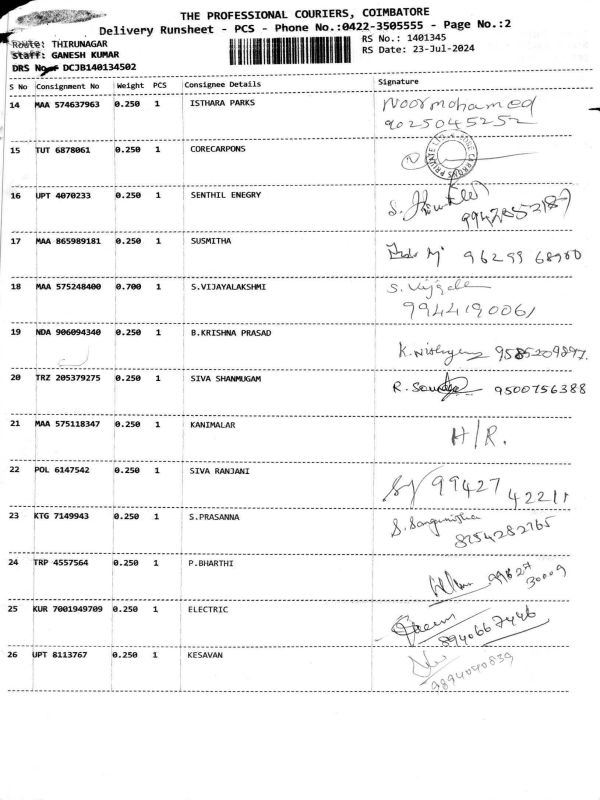 THE PROFESSIONAL COURIERS, COIMBATORE
Delivery Runsheet - PCS - Phone No.:0422-3505555 - Page No.:2
Route: THIRUNAGAR RS No.: 1401345
Staff: GANESH KUMAR RS Date: 23-Jul-2024
DRS No DCJB140134502
S No Consignment No Weight PCS Consignee Details Signature
14 MAA 574637963 0.250 1 ISTHARA PARKS Noormohamed
9025045252
15 TUT 6878061 0.250 1 CORECARPONS
16 UPT 4070233 0.250 1 SENTHIL ENEGRY S.
17 MAA 865989181 0.250 1 SUSMITHA 96299 68900
18 MAA 575248400 0.700 1 S.VIJAYALAKSHMI S.
9944190061
19 NDA 906094340 0.250 1 B.KRISHNA PRASAD
K. 9585209897.
20 TRZ 205379275 0.250 1 SIVA SHANMUGAM R. 9500756388
21 MAA 575118347 0.250 1 KANIMALAR H/R.
22 POL 6147542 0.250 1 SIVA RANJANI 99427
42211
23 KTG 7149943 0.250 1 S.PRASANNA S.
8754282765
24 TRP 4557564 0.250 1 P.BHARTHI 99627
30009
25 KUR 7001949709 0.250 1 ELECTRIC
8940667446
26 UPT 8113767 0.250 1 KESAVAN
9894040839